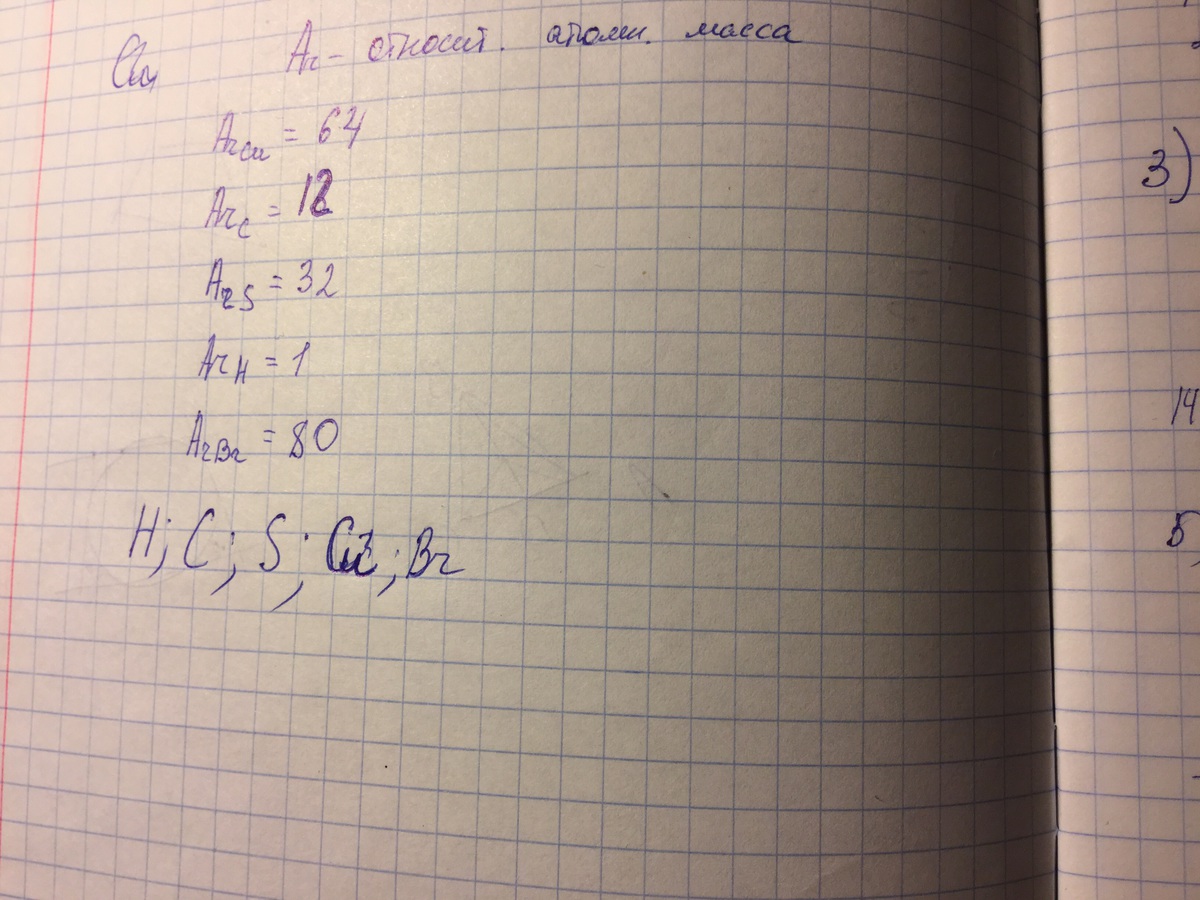 Cu Ar - относит. атомн. масса
ArCu = 64
ArC = 12
ArS = 32
ArH = 1
ArBr = 80
H; C; S; Cu; Br
3)
14
5